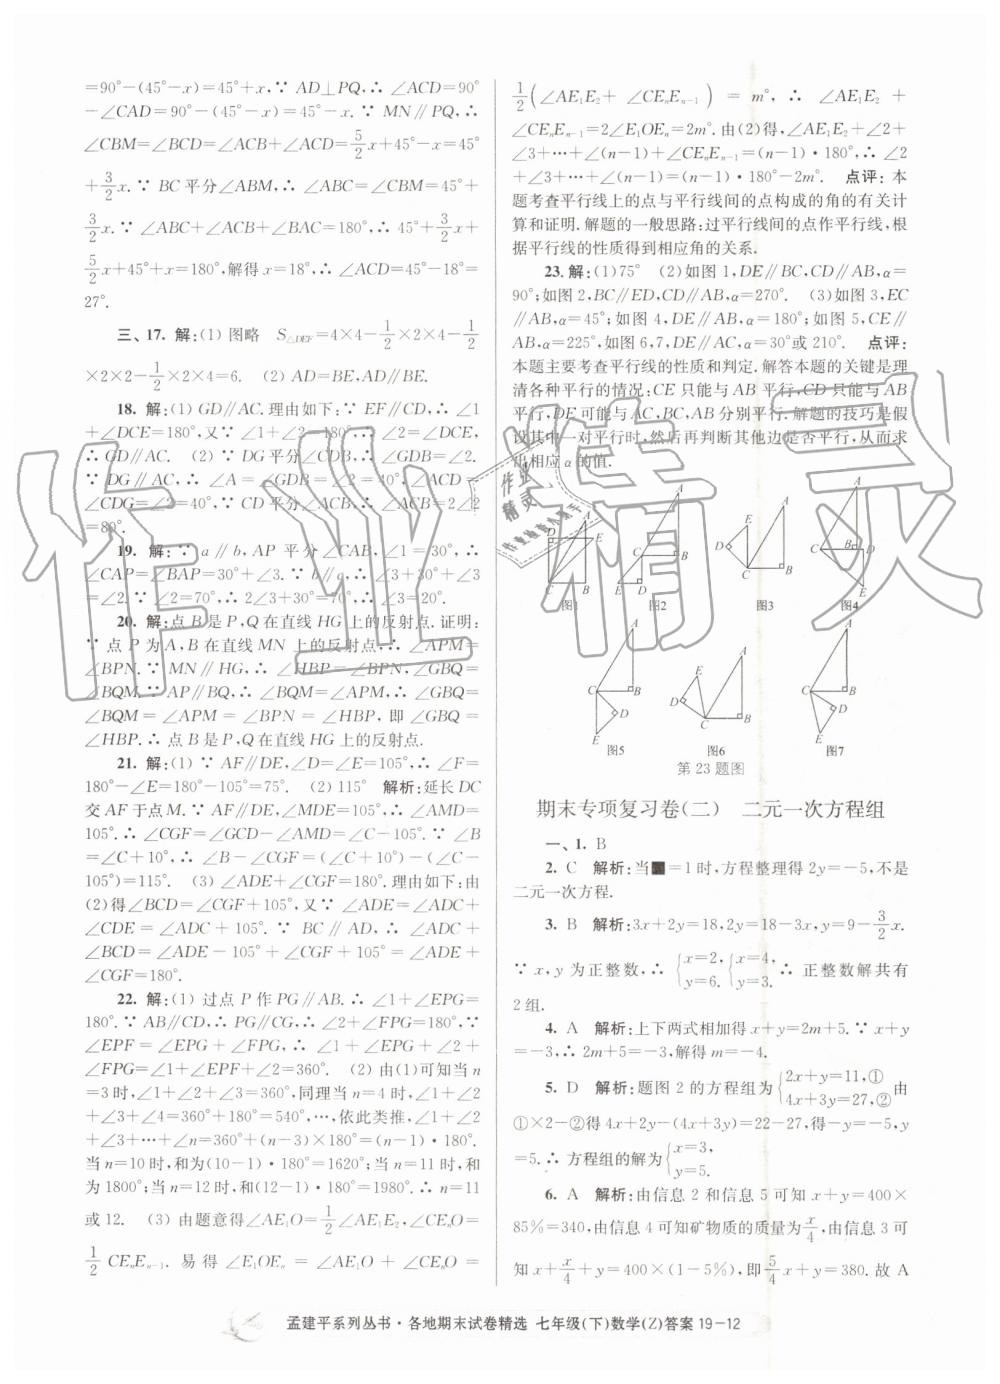 =90°-(45°-x)=45°+x,∵ AD⊥PQ,∴ ∠ACD=90°
-∠CAD=90°-(45°-x)=45°-x.∵ MN∥PQ,∴
∠CBM=∠BCD=∠ACB+∠ACD=5/2x+45°-x=45°
+3/2x.∵ BC平分∠ABM,∴ ∠ABC=∠CBM=45°+
3/2x.∵ ∠ABC+∠ACB+∠BAC=180°,∴ 45°+3/2x+
5/2x+45°+x=180°,解得x=18°,∴ ∠ACD=45°-18°=
27°.
三、17. 解:(1) 图略 S△DEF=4×4-1/2×2×4-1/2
×2×2-1/2×2×4=6. (2) AD=BE,AD∥BE.
18. 解:(1) GD∥AC.理由如下:∵ EF∥CD,∴ ∠1
+∠DCE=180°,又∵ ∠1+∠2=180°,∴ ∠2=∠DCE,
∴ GD∥AC. (2) ∵ DG平分∠CDB,∴ ∠GDB=∠2.
∵ DG∥AC,∴ ∠A=∠GDB=∠2=40°,∠ACD=
∠CDG=∠2=40°,∵ CD平分∠ACB,∴ ∠ACB=2∠2
=80°.
19. 解:∵ a∥b,AP 平分∠CAB,∠1=30°,∴
∠CAP=∠BAP=30°+∠3.∵ b∥c,∴ ∠3+30°+∠3
=∠2.∵ ∠2=70°,∴ 2∠3+30°=70°,∴ ∠3=20°.
20. 解:点B是P,Q在直线HG上的反射点.证明:
∵ 点P为A,B在直线MN上的反射点,∴ ∠APM=
∠BPN.∵ MN∥HG,∴ ∠HBP=∠BPN,∠GBQ=
∠BQM,∵ AP∥BQ,∴ ∠BQM=∠APM,∴ ∠GBQ=
∠BQM=∠APM=∠BPN=∠HBP,即∠GBQ=
∠HBP.∴ 点B是P,Q在直线HG上的反射点.
21. 解:(1) ∵ AF∥DE,∠D=∠E=105°,∴ ∠F=
180°-∠E=180°-105°=75°. (2) 115° 解析:延长DC
交AF于点M.∵ AF∥DE,∠MDE=105°,∴ ∠AMD=
105°.∴ ∠CGF=∠GCD-∠AMD=∠C-105°.∵ ∠B
=∠C+10°,∴ ∠B-∠CGF=(∠C+10°)-(∠C-
105°)=115°. (3) ∠ADE+∠CGF=180°.理由如下:由
(2)得∠BCD=∠CGF+105°,又∵ ∠ADE=∠ADC+
∠CDE=∠ADC+105°.∵ BC∥AD,∴ ∠ADC+
∠BCD=∠ADE-105°+∠CGF+105°=∠ADE+
∠CGF=180°.
22. 解:(1) 过点P作PG∥AB.∴ ∠1+∠EPG=
180°.∵ AB∥CD,∴ PG∥CG,∴ ∠2+∠FPG=180°,∵
∠EPF=∠EPG+∠FPG,∴ ∠1+∠EPG+∠2+
∠FPG=∠1+∠EPF+∠2=360°. (2) 由(1)可知当n
=3时,∠1+∠2+∠3=360°,同理当n=4时,∠1+∠2
+∠3+∠4=360°+180°=540°,…,依此类推,∠1+∠2
+∠3+…+∠n=360°+(n-3)×180°=(n-1)·180°.
当n=10时,和为(10-1)·180°=1620°;当n=11时,和
为1800°;当n=12时,和(12-1)·180°=1980°.∴ n=11
或12. (3) 由题意得∠AE₁O=1/2∠AE₁E₂,∠CEₙO=
1/2CEₙEₙ₋₁. 易得∠E₁OEₙ=∠AE₁O+∠CEₙO=
1/2(∠AE₁E₂+∠CEₙEₙ₋₁)=m°,∴ ∠AE₁E₂+
∠CEₙEₙ₋₁=2∠E₁OEₙ=2m°.由(2)得,∠AE₁E₂+∠2+
∠3+…+∠(n-1)+∠CEₙEₙ₋₁=(n-1)·180°,∴ ∠2
+∠3+…+∠(n-1)=(n-1)·180°-2m°. 点评:本
题考查平行线上的点与平行线间的点构成的角的有关计
算和证明.解题的一般思路:过平行线间的点作平行线,根
据平行线的性质得到相应角的关系.
23. 解:(1)75° (2)如图1,DE∥BC,CD∥AB,α=
90°;如图2,BC∥ED,CD∥AB,α=270°. (3)如图3,EC
∥AB,α=45°;如图4,DE∥AB,α=180°;如图5,CE∥
AB,α=225°,如图6,7,DE∥AC,α=30°或210°. 点评:
本题主要考查平行线的性质和判定.解答本题的关键是理
清各种平行的情况:CE只能与AB平行,CD只能与AB
平行,DE可能与AC,BC,AB分别平行.解题的技巧是假
设其中一对平行时,然后再判断其他边是否平行,从而求
出相应α的值.
图1 图2 图3 图4
图5 图6 图7
第23题图
期末专项复习卷(二) 二元一次方程组
一、1. B
2. C 解析:当■=1时,方程整理得2y=-5,不是
二元一次方程.
3. B 解析:3x+2y=18,2y=18-3x,y=9-3/2x.
∵ x,y为正整数,∴ {x=2,y=6. {x=4,y=3. ∴ 正整数解共有
2组.
4. A 解析:上下两式相加得x+y=2m+5.∵ x+y
=-3,∴ 2m+5=-3,解得m=-4.
5. D 解析:题图2的方程组为{2x+y=11,① 4x+3y=27,② 由
①×2-②得4x+2y-(4x+3y)=22-27,得y
=5.∴ 方程组的解为{x=3,y=5.
6. A 解析:由信息2和信息5可知x+y=400×
85%=340,由信息4可知矿物质的质量为x/4,由信息3可
知x+x/4+y=400×(1-5%),即5/4x+y=380.故A
孟建平系列丛书·各地期末试卷精选 七年级(下)数学(Z)答案 19-12
作业精灵